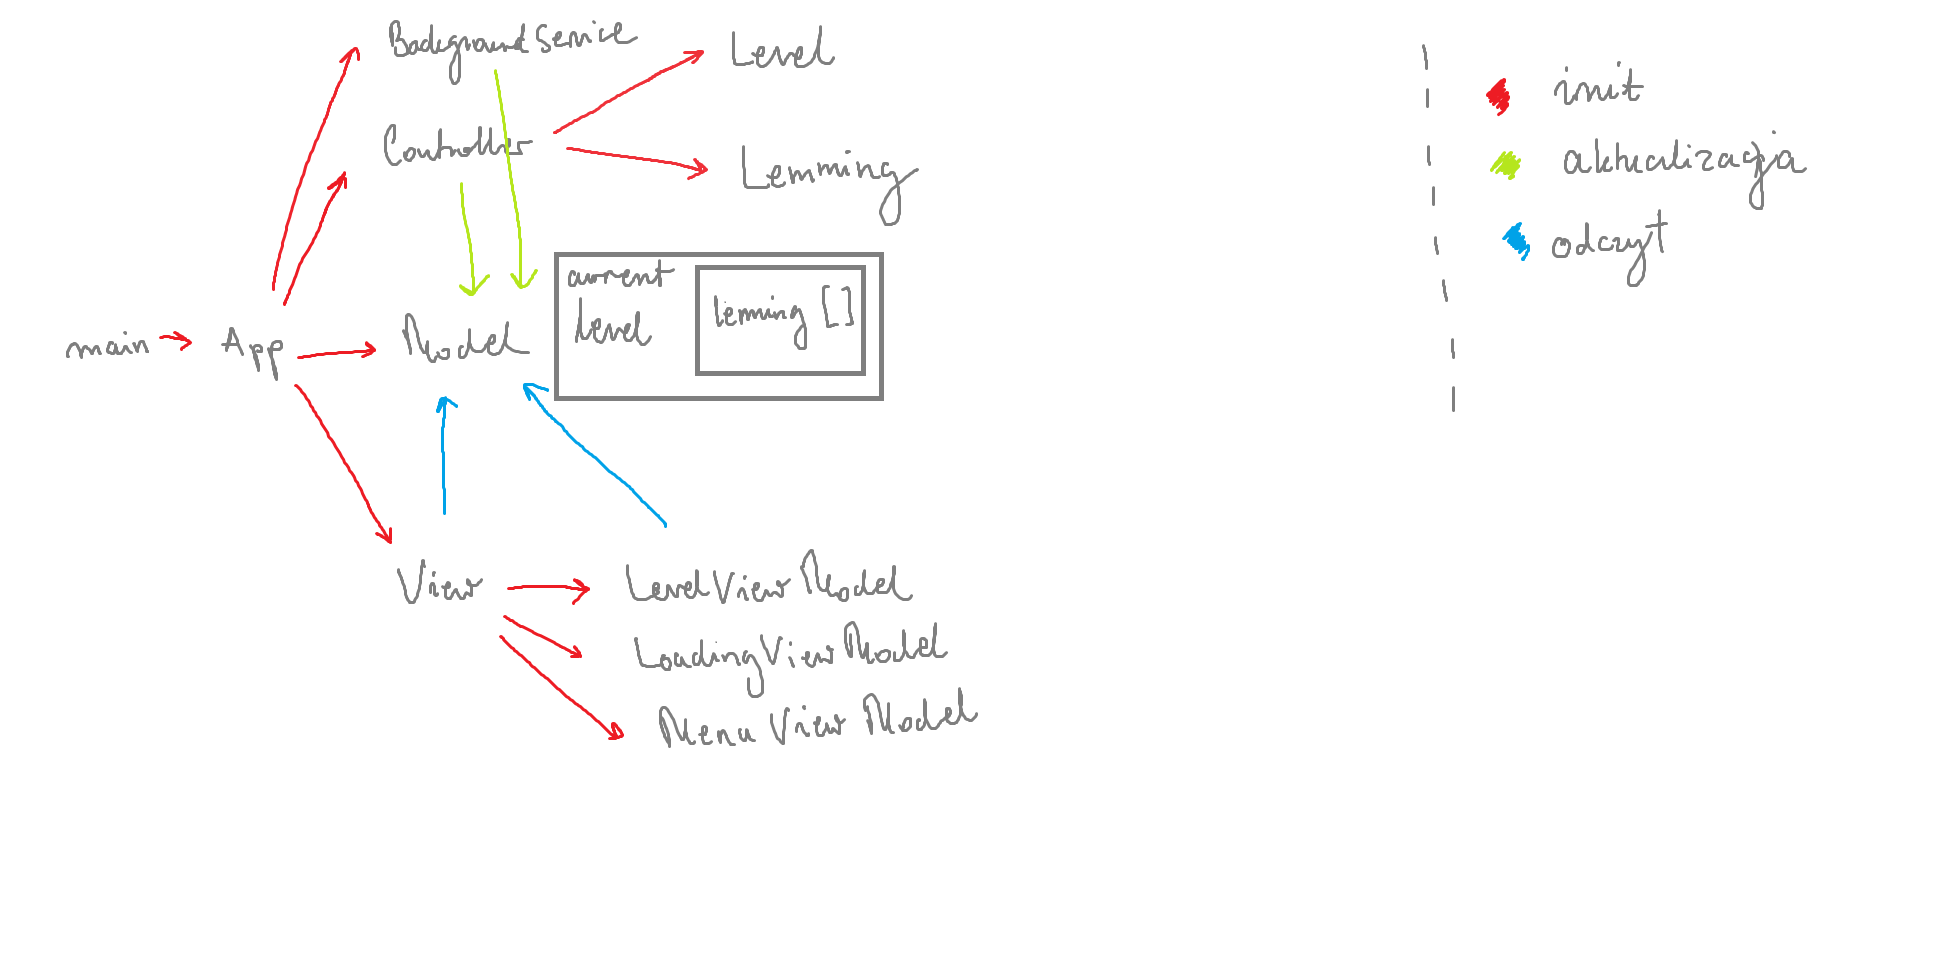 BackgroundService
Level
Controller
Lemming
main
App
Model
current
level
lemming []
View
LevelViewModel
LoadingViewModel
Menu View Model
init
aktualizacja
odczyt